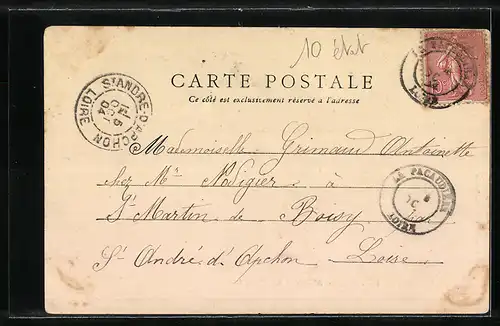 10 état
CARTE POSTALE
Ce côté est exclusivement réservé à l'adresse
ST ANDRÉ-D'APCHON
5
OCT
04
LOIRE
Mademoiselle Grimaud Antoinette
chez Mr Nodigier à
St Martin de Boisy
St André d'Apchon Loire
LA PACAUDIÈRE
LOIRE